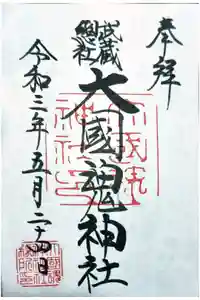 奉拝
武蔵
総社
大國魂神社
令和三年五月二十四日